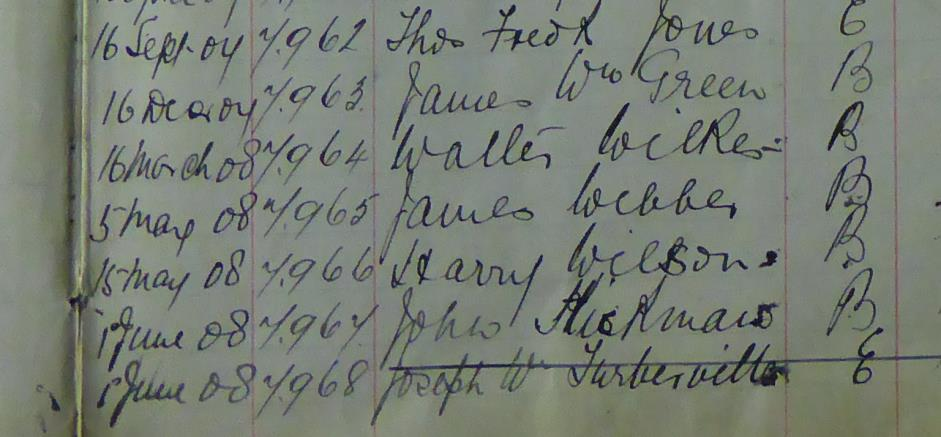 16 Sept 04 7.962 Thos Fredk Jones E
16 Dec 04 7.963. James Wm Green B
16 March 08 7.964 Walter Wilkes B
5 May 08 7.965 James Webber B
15 May 08 7.966 Harry Wilson B
1 June 08 7.967. John Hickmans B
1 June 08 7.968 Joseph W Turberville E